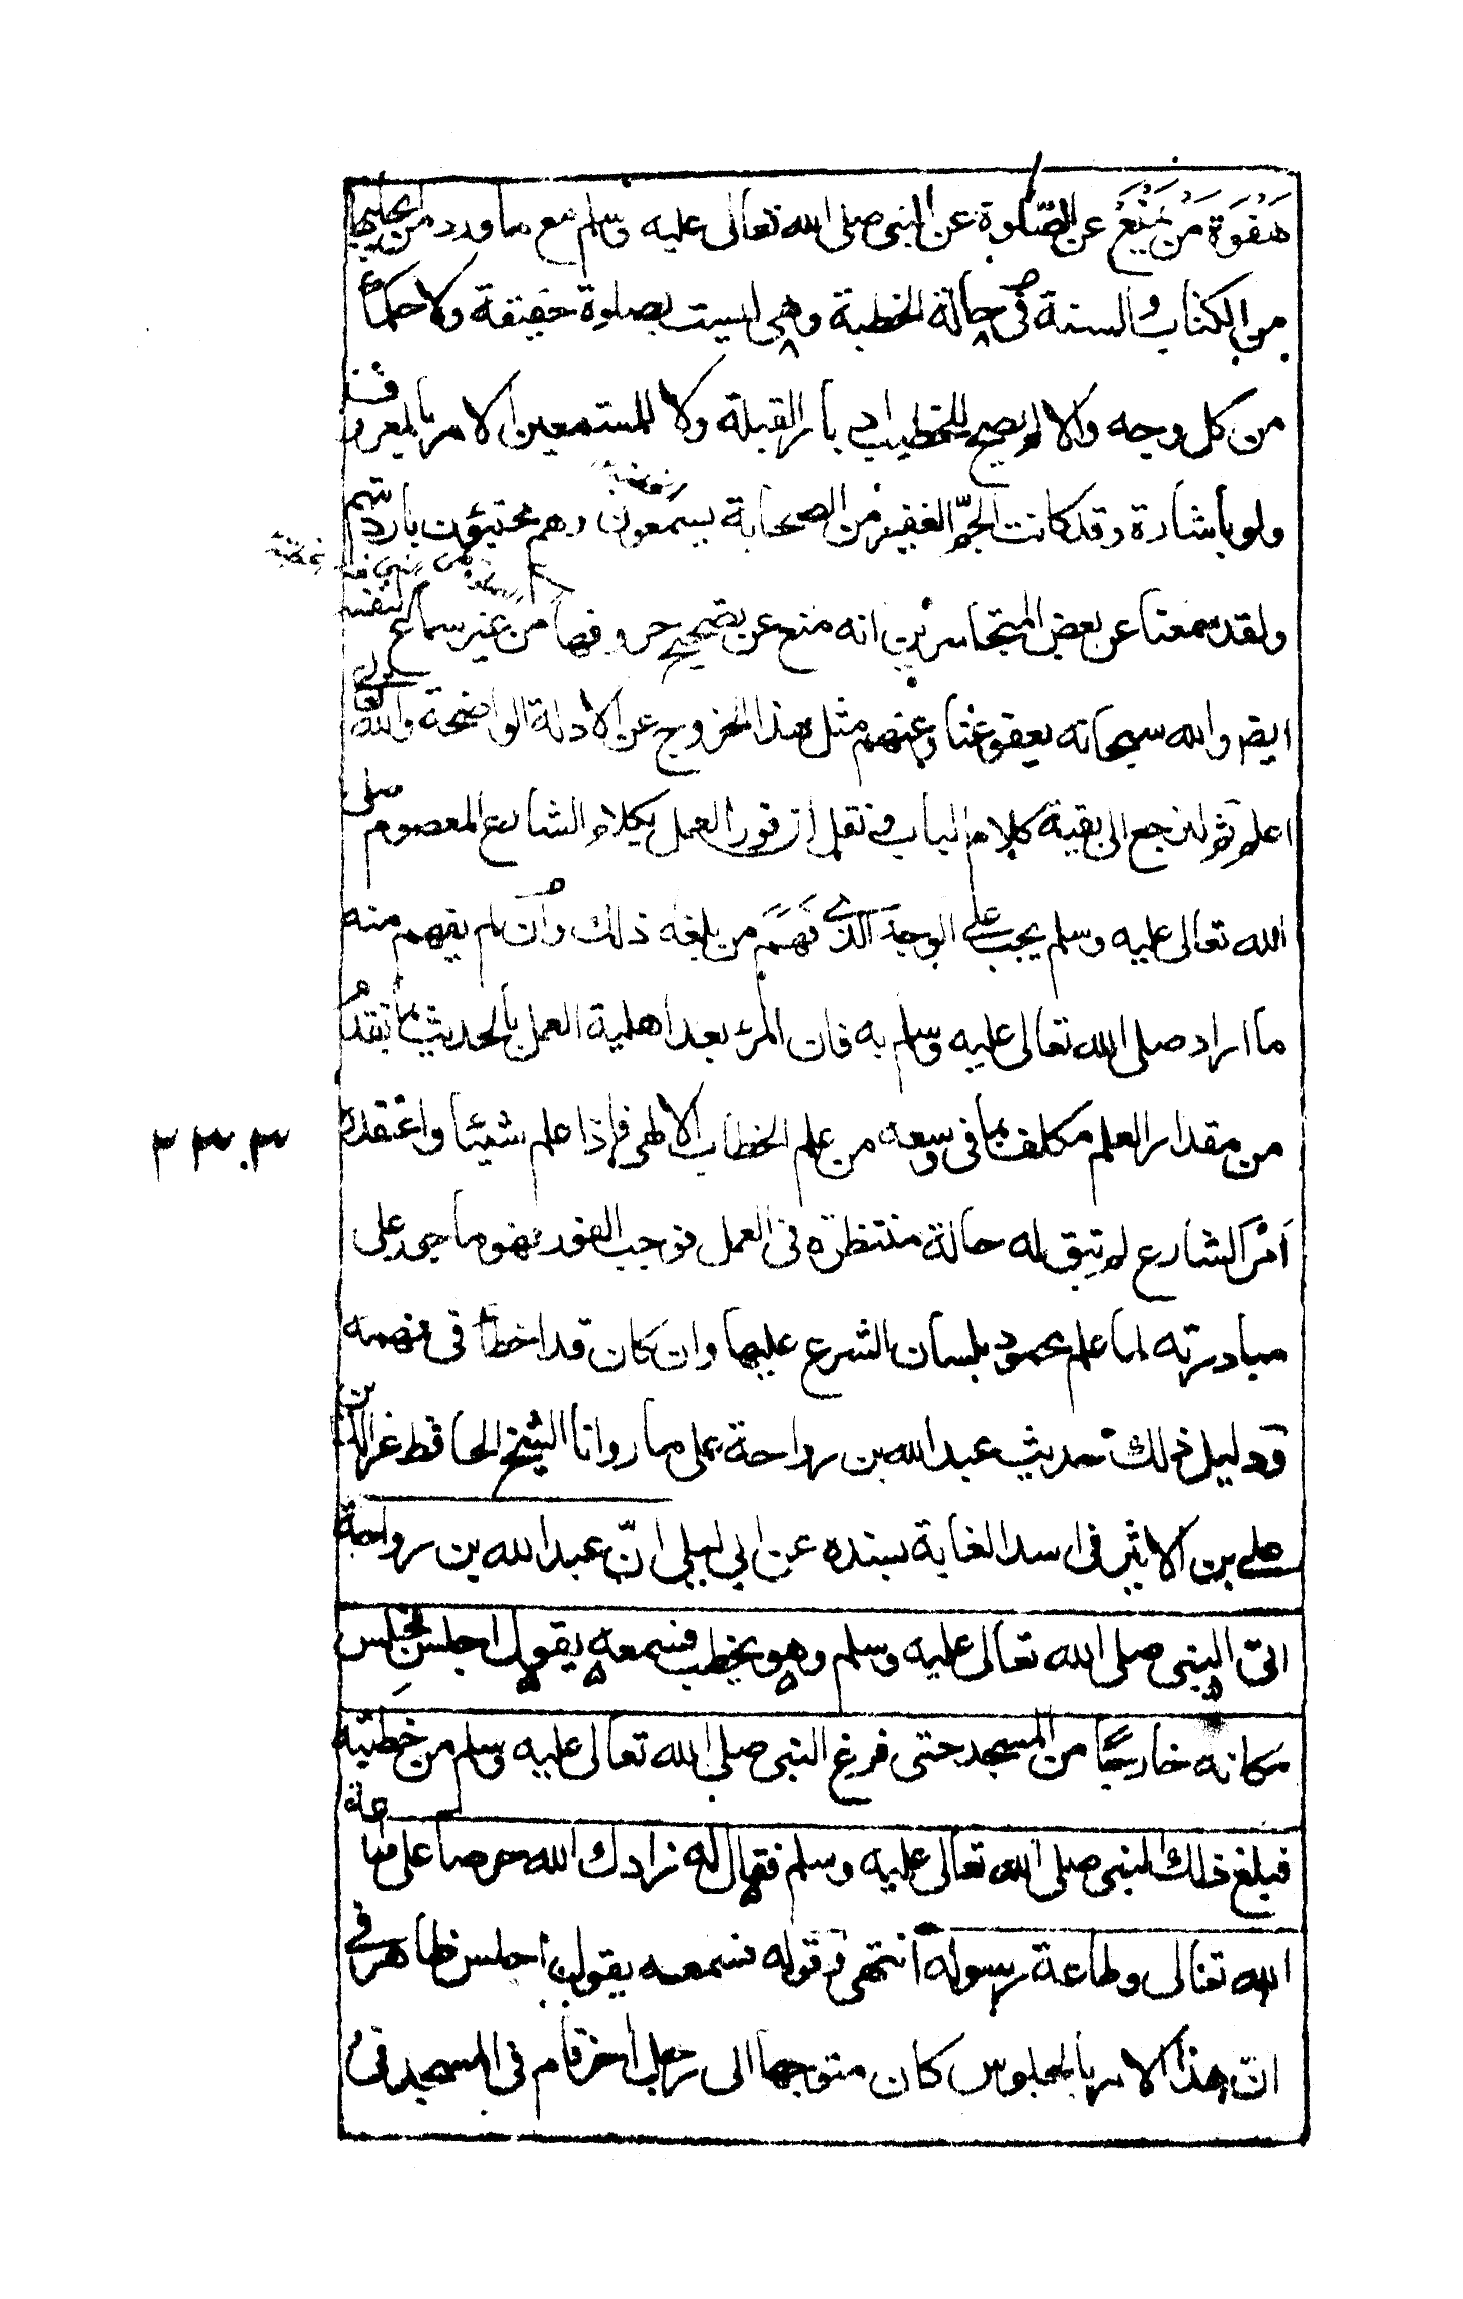 هَفْوَة مَنْ مَنَعَ عن الصّلوة عن النبى صلى الله تعالى عليه وسلم مع ما ورد من
من الكتاب والسنة فى حالة الخطبة وهى ليست بصلوة حقيقة ولا حكما
من كل وجه والا لم يصح للخطيب ادبار القبلة ولا للمستمعين الامر بالمعروف
ولو باشارة وقد كانت الجمّ الغفير من الصحابة يسمعون وهم محتبؤن بارديتهم
ولقد سمعنا عن بعض المتجاسرين انه منع عن تصحيح حروفها من غير سماع لنفسه
ايضا والله سبحانه يعفو عنا وعنهم مثل هذا الخروج عن الادلة الواضحة والله تعالى
اعلم ثم لنرجع الى بقية كلام الباب فنقل ان فور العمل بكلام الشارع المعصوم صلى
الله تعالى عليه وسلم يجب على الوجه الذى فَهِمَ من بلغه ذلك وان لم يفهم منه
ما اراد صلى الله تعالى عليه وسلم به فان المرء بعد اهلية العمل بالحديث بما
من مقدار العلم مكلف بما فى وسعه من علم الخطاب الالهى فاذا علم شيئا واعتقده
أمر الشارع لم تبق له حالة منتظرة فى العمل فوجب الفور فهو ماجور على
مبادرته لما علم محمود بلسان الشرع عليها وان كان قد اخطأ فى فهمه
ودليل ذلك حديث عبد الله بن رواحة على ما روانا الشيخ الحافظ عز الدين
على بن الاثير فى اسد الغابة بسنده عن ابى ليلى انّ عبد الله بن رواحة
اتى النبى صلى الله تعالى عليه وسلم وهو يخطب فسمعه يقول اجلس فجلس
مكانه خارجًا من المسجد حتى فرغ النبى صلى الله تعالى عليه وسلم من خطبته
فبلغ ذلك النبى صلى الله تعالى عليه وسلم فقال له زادك الله حرصا على طاعة
الله تعالى وطاعة رسوله انتهى قوله فسمعه يقول اجلس ظاهر فى
انّ هذا الامر بالجلوس كان متوجها الى رجل آخر قام فى المسجد فى